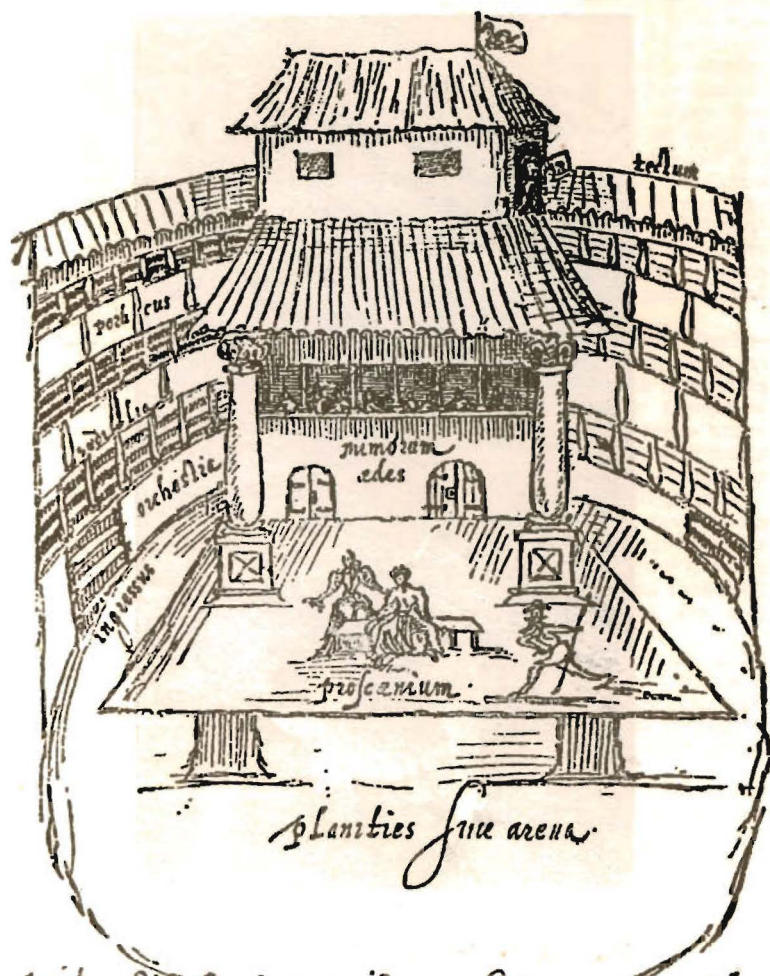 tectum
porticus
orchestra
mimorum
ædes
ingressus
proscænium.
planities siue arena.